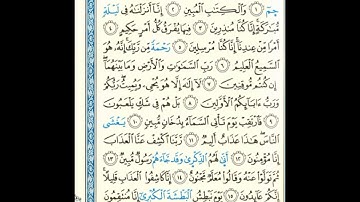 حمٓ ١ وَٱلْكِتَٰبِ ٱلْمُبِينِ ٢ إِنَّآ أَنزَلْنَٰهُ فِى لَيْلَةٍ
مُّبَٰرَكَةٍ إِنَّا كُنَّا مُنذِرِينَ ٣ فِيهَا يُفْرَقُ كُلُّ أَمْرٍ حَكِيمٍ ٤
أَمْرًا مِّنْ عِندِنَآ إِنَّا كُنَّا مُرْسِلِينَ ٥ رَحْمَةً مِّن رَّبِّكَ إِنَّهُۥ هُوَ
ٱلسَّمِيعُ ٱلْعَلِيمُ ٦ رَبِّ ٱلسَّمَٰوَٰتِ وَٱلْأَرْضِ وَمَا بَيْنَهُمَآ
إِن كُنتُم مُّوقِنِينَ ٧ لَآ إِلَٰهَ إِلَّا هُوَ يُحْىِۦ وَيُمِيتُ رَبُّكُمْ
وَرَبُّ ءَابَآئِكُمُ ٱلْأَوَّلِينَ ٨ بَلْ هُمْ فِى شَكٍّ يَلْعَبُونَ
٩ فَٱرْتَقِبْ يَوْمَ تَأْتِى ٱلسَّمَآءُ بِدُخَانٍ مُّبِينٍ ١٠ يَغْشَى
ٱلنَّاسَ هَٰذَا عَذَابٌ أَلِيمٌ ١١ رَّبَّنَا ٱكْشِفْ عَنَّا ٱلْعَذَابَ
إِنَّا مُؤْمِنُونَ ١٢ أَنَّىٰ لَهُمُ ٱلذِّكْرَىٰ وَقَدْ جَآءَهُمْ رَسُولٌ مُّبِينٌ ١٣
ثُمَّ تَوَلَّوْا۟ عَنْهُ وَقَالُوا۟ مُعَلَّمٌ مَّجْنُونٌ ١٤ إِنَّا كَاشِفُوا۟ ٱلْعَذَابِ قَلِيلًا
إِنَّكُمْ عَآئِدُونَ ١٥ يَوْمَ نَبْطِشُ ٱلْبَطْشَةَ ٱلْكُبْرَىٰٓ إِنَّا مُنتَقِمُونَ